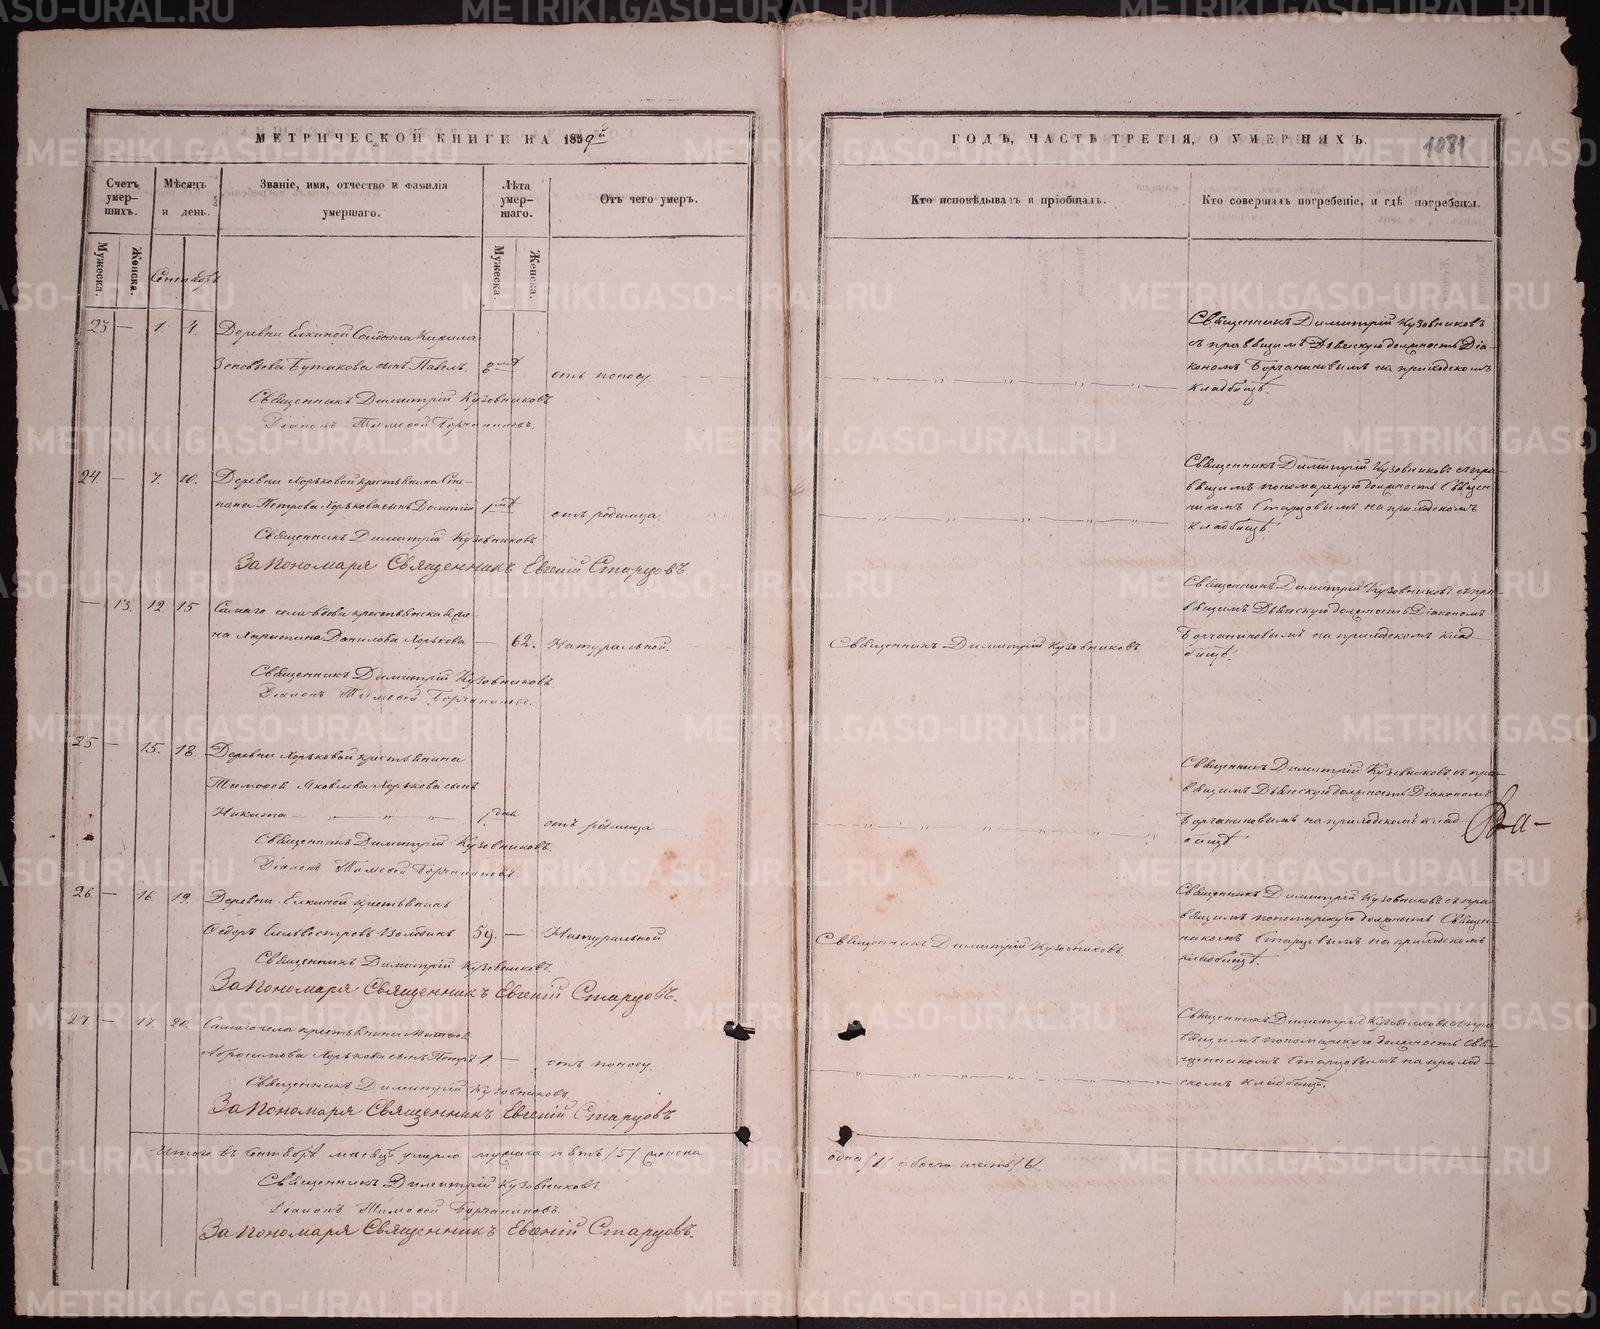 МЕТРИЧЕСКОЙ КНИГИ НА 1859й
ГОДЪ, ЧАСТЬ ТРЕТІЯ, О УМЕРШИХЪ.
1081
Счетъ умер-шихъ.
Мѣсяцъ и день.
Званіе, имя, отчество и фамилія умершаго.
Лѣта умер-шаго.
Отъ чего умеръ.
Кто исповѣдывалъ и пріобщалъ.
Кто совершалъ погребеніе, и гдѣ погребены.
Мужеска.
Женска.
Сентябрь
Мужеска.
Женска.
23 — 1. 4. Деревни Елкиной Солдата Кирила
Зеновьева Бутакова сынъ Павелъ. отъ поносу.
Священникъ Димитрій Кузовниковъ
Діаконъ Тимофей Борчаниновъ.
Священникъ Димитрій Кузовниковъ
съ правящимъ Дьяческую должность Діа-
кономъ Борчаниновымъ на приходскомъ
кладбищѣ.
24. — 7. 10. Деревни Хорьковой крестьянина Сте-
пана Петрова Хорькова сынъ отъ родимца.
Священникъ Димитрій Кузовниковъ
За пономаря Священникъ Евгеній Старцовъ.
Священникъ Димитрій Кузовниковъ съ пра-
вящимъ пономарскую должность Священ-
никомъ Старцовымъ на приходскомъ
кладбищѣ.
— 13. 12 15 Самаго села вдова крестьянская же-
на Харитина Данилова Хорькова — 62. Натуральной.
Священникъ Димитрій Кузовниковъ
Діаконъ Тимофей Борчаниновъ.
Священникъ Димитрій Кузовниковъ.
Священникъ Димитрій Кузовниковъ съ пра-
вящимъ Дьяческую должность Діакономъ
Борчаниновымъ на приходскомъ клад-
бищѣ.
25 — 15. 18. Деревни Хорьковой крестьянина
Тимофея Яковлева Хорькова сынъ
Никита — „ „ „ „ 1. дня отъ родимца
Священникъ Димитрій Кузовниковъ.
Діаконъ Тимофей Борчаниновъ.
Священникъ Димитрій Кузовниковъ съ пра-
вящимъ Дьяческую должность Діакономъ
Борчаниновымъ на приходскомъ клад-
бищѣ
26. — 16 19. Деревни Елкиной крестьянинъ
Ѳедоръ Сильвестровъ 59. — Натуральной
Священникъ Димитрій Кузовниковъ.
За пономаря Священникъ Евгеній Старцовъ.
Священникъ Димитрій Кузовниковъ.
Священникъ Димитрій Кузовниковъ съ пра-
вящимъ пономарскую должность Священ-
никомъ Старцовымъ на приходскомъ
кладбищѣ.
27 — 17. 20. Самаго села крестьянина Матвея
Абросимова Хорькова сынъ Петръ 1. — отъ поносу.
Священникъ Димитрій Кузовниковъ.
За пономаря Священникъ Евгеній Старцовъ
Священникъ Димитрій Кузовниковъ съ пра-
вящимъ пономарскую должность Свя-
щенникомъ Старцовымъ на приход-
скомъ кладбищѣ.
Итого въ Сентябрѣ месяцѣ умерло мужска пять /5/ женска
одна /1/ обоего шесть /6/.
Священникъ Димитрій Кузовниковъ
Діаконъ Тимофей Борчаниновъ.
За пономаря Священникъ Евгеній Старцовъ.
METRIKI.GASO-URAL.RU